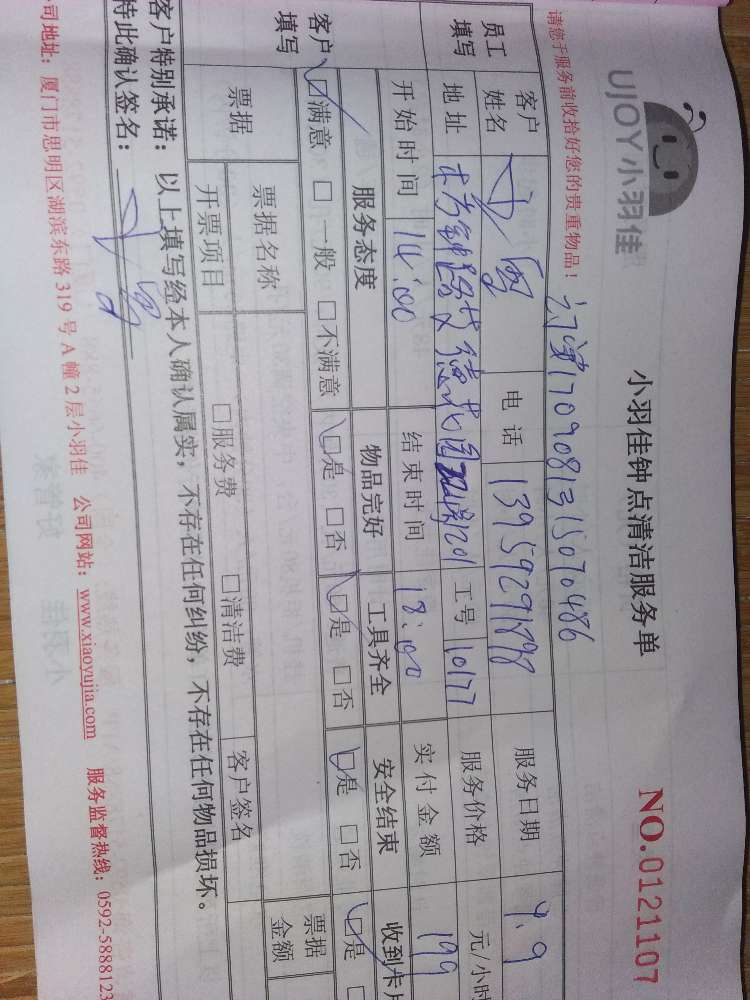 UJOY小羽佳
小羽佳钟点清洁服务单
NO.0121107
请您于服务前收拾好您的贵重物品！
订单1709081315070486
员工填写
客户姓名 电话 13959291898 服务日期 9.9
地址 工号 10177 服务价格 元/小时
开始时间 14:00 结束时间 18:00 实付金额 199
客户填写
服务态度 物品完好 工具齐全 安全结束 收到卡片
☑满意 □一般 □不满意 ☑是 □否 ☑是 □否 ☑是 □否 ☑是
票据 票据名称 票据金额
开票项目 □服务费 □清洁费 客户签名
客户特别承诺：以上填写经本人确认属实，不存在任何纠纷，不存在任何物品损坏。
特此确认签名：
公司地址：厦门市思明区湖滨东路319号A幢2层小羽佳 公司网站：www.xiaoyujia.com 服务监督热线：0592-5888123